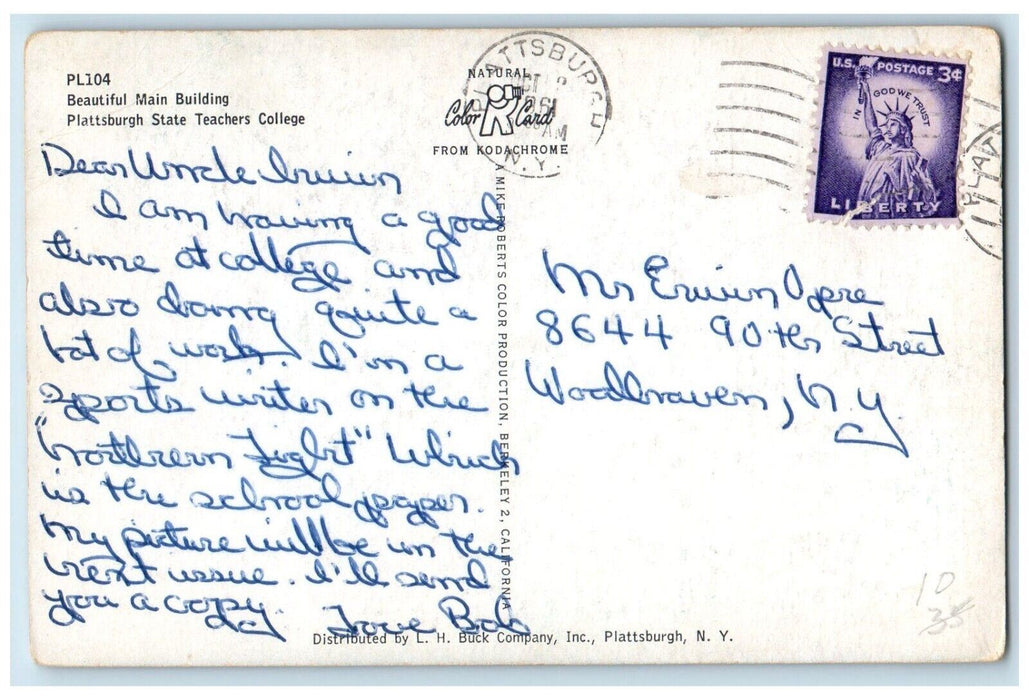 PL104
Beautiful Main Building
Plattsburgh State Teachers College
NATURAL
Color Card
FROM KODACHROME
PLATTSBURGH
OCT
1961
AM
N.Y.
U.S. POSTAGE 3¢
IN GOD WE TRUST
LIBERTY
Dear Uncle Irwin
I am having a good
time at college and
also doing quite a
lot of work. I'm a
sports writer on the
"northern Light" Which
is the school paper.
My picture will be in the
next issue. I'll send
you a copy.
Love Bob
A MIKE ROBERTS COLOR PRODUCTION, BERKELEY 2, CALIFORNIA
Mr Erwin Opre
8644 90th Street
Woodhaven, N.Y.
10
35
Distributed by L. H. Buck Company, Inc., Plattsburgh, N. Y.